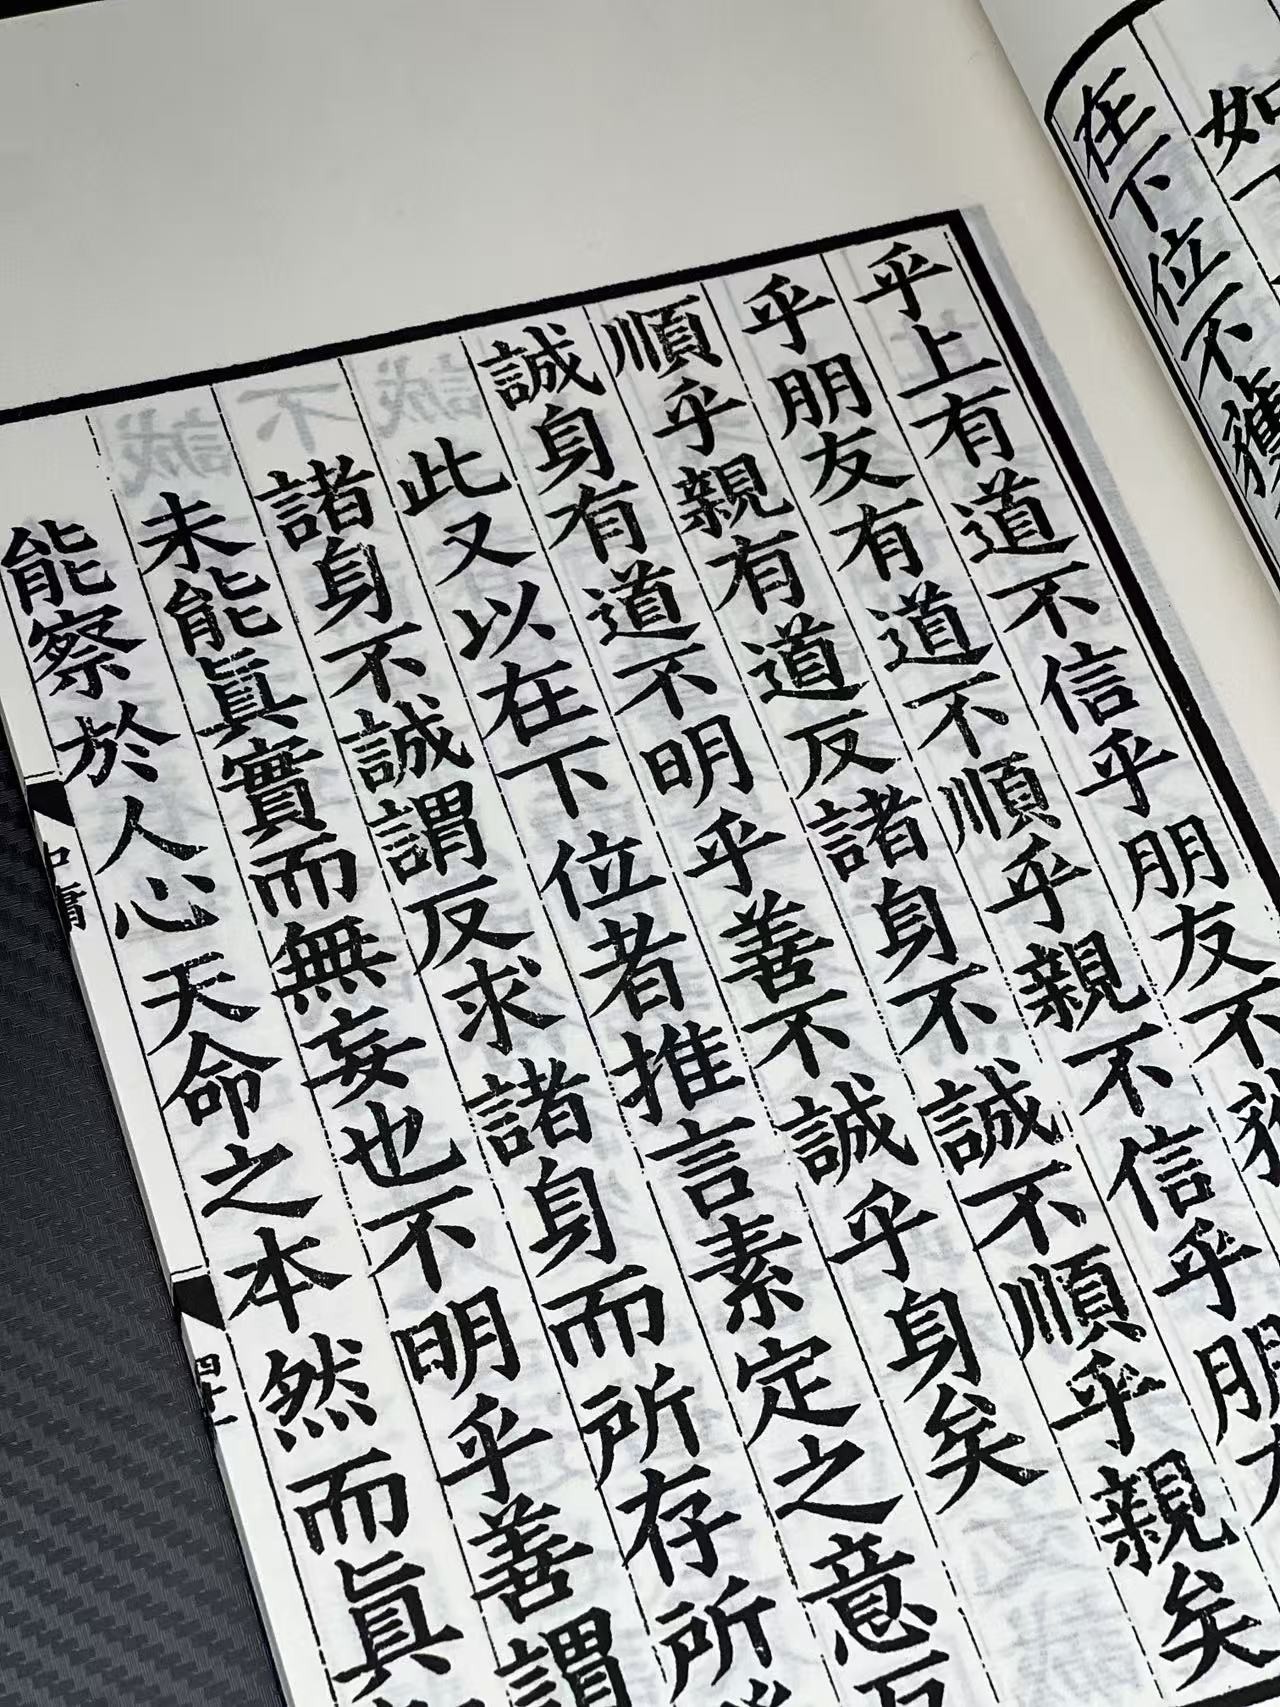 如
在下位不獲
乎上有道不信乎朋友不
乎朋友有道不順乎親不信乎朋
順乎親有道反諸身不誠不順乎親矣
誠身有道不明乎善不誠乎身矣
此又以在下位者推言素定之意反
諸身不誠謂反求諸身而所存所
未能眞實而無妄也不明乎善謂
能察於人心天命之本然而眞
中庸